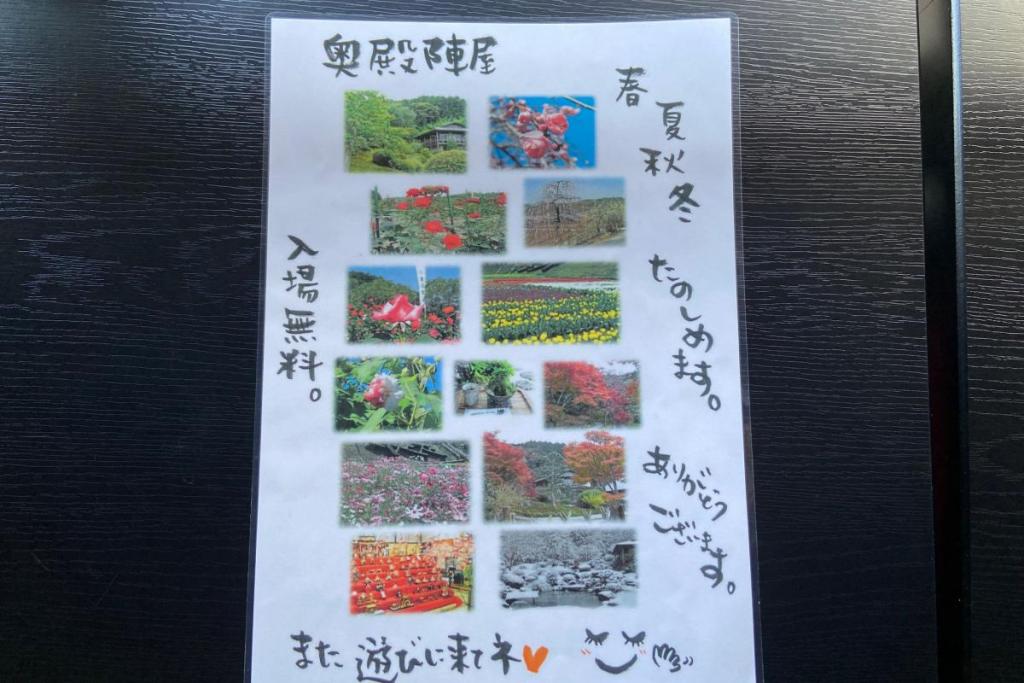 奥殿陣屋
春夏秋冬
たのしめます。
入場無料。
ありがとう
ございます。
また遊びに来てネ